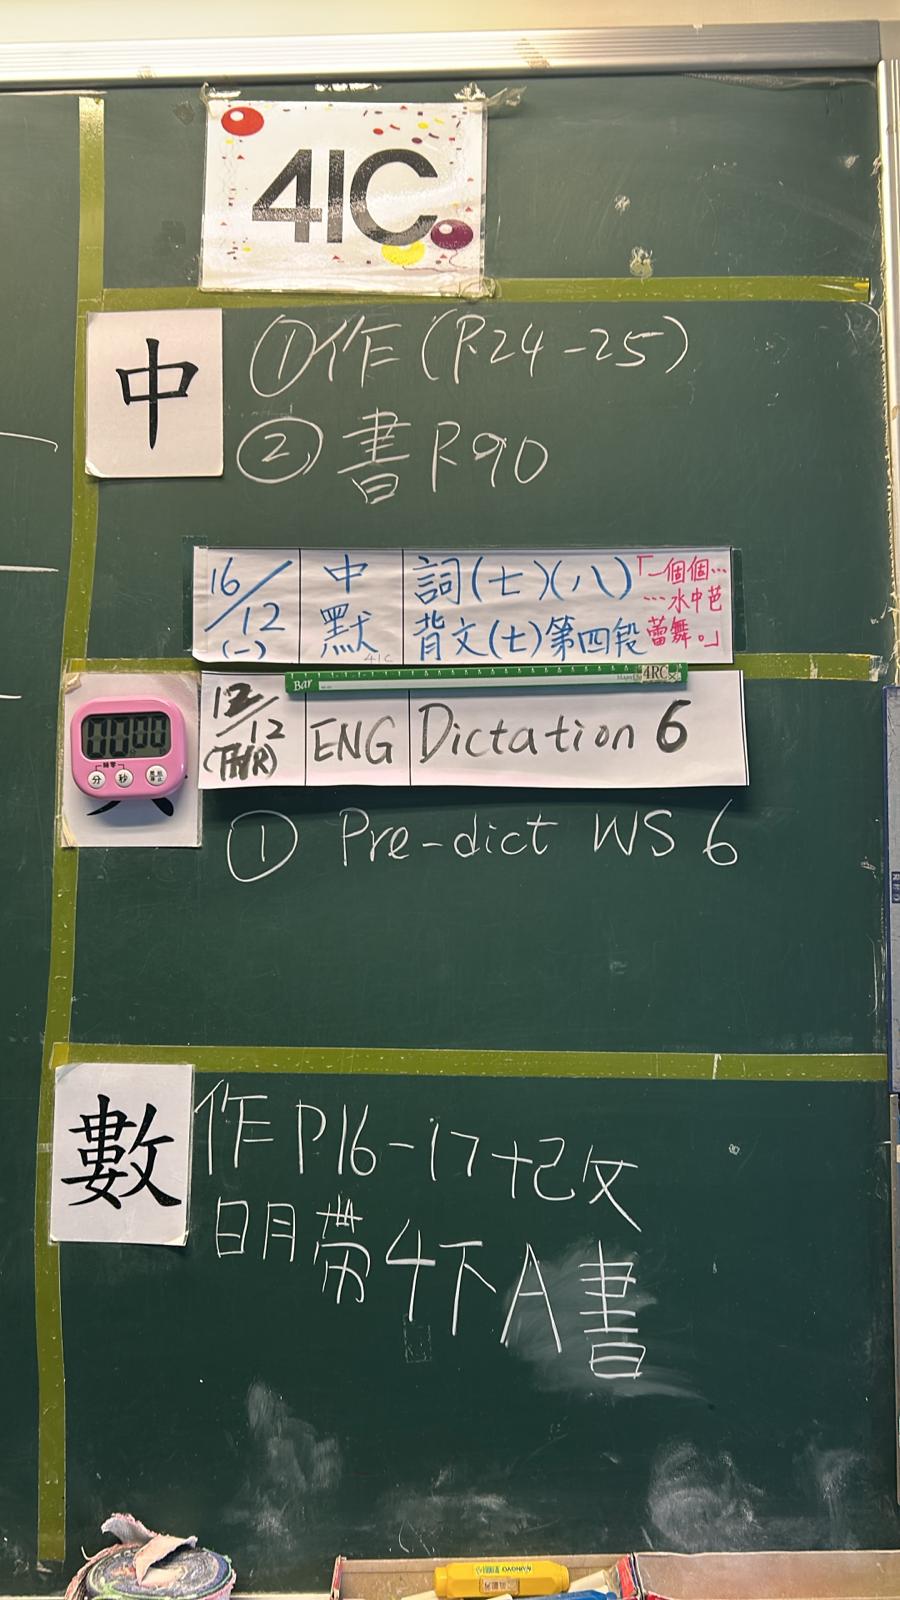 41C
中
①作(P.24-25)
②書P.90
16/12(一) 中默 詞(七)(八)
背文(七)第四段
「一個個…
…水中芭
蕾舞。」
41C
Bar
4RC
12/12(THUR) ENG Dictation 6
00 00
分 秒
① Pre-dict WS 6
數
作P16-17+記文
日月帶4下A書